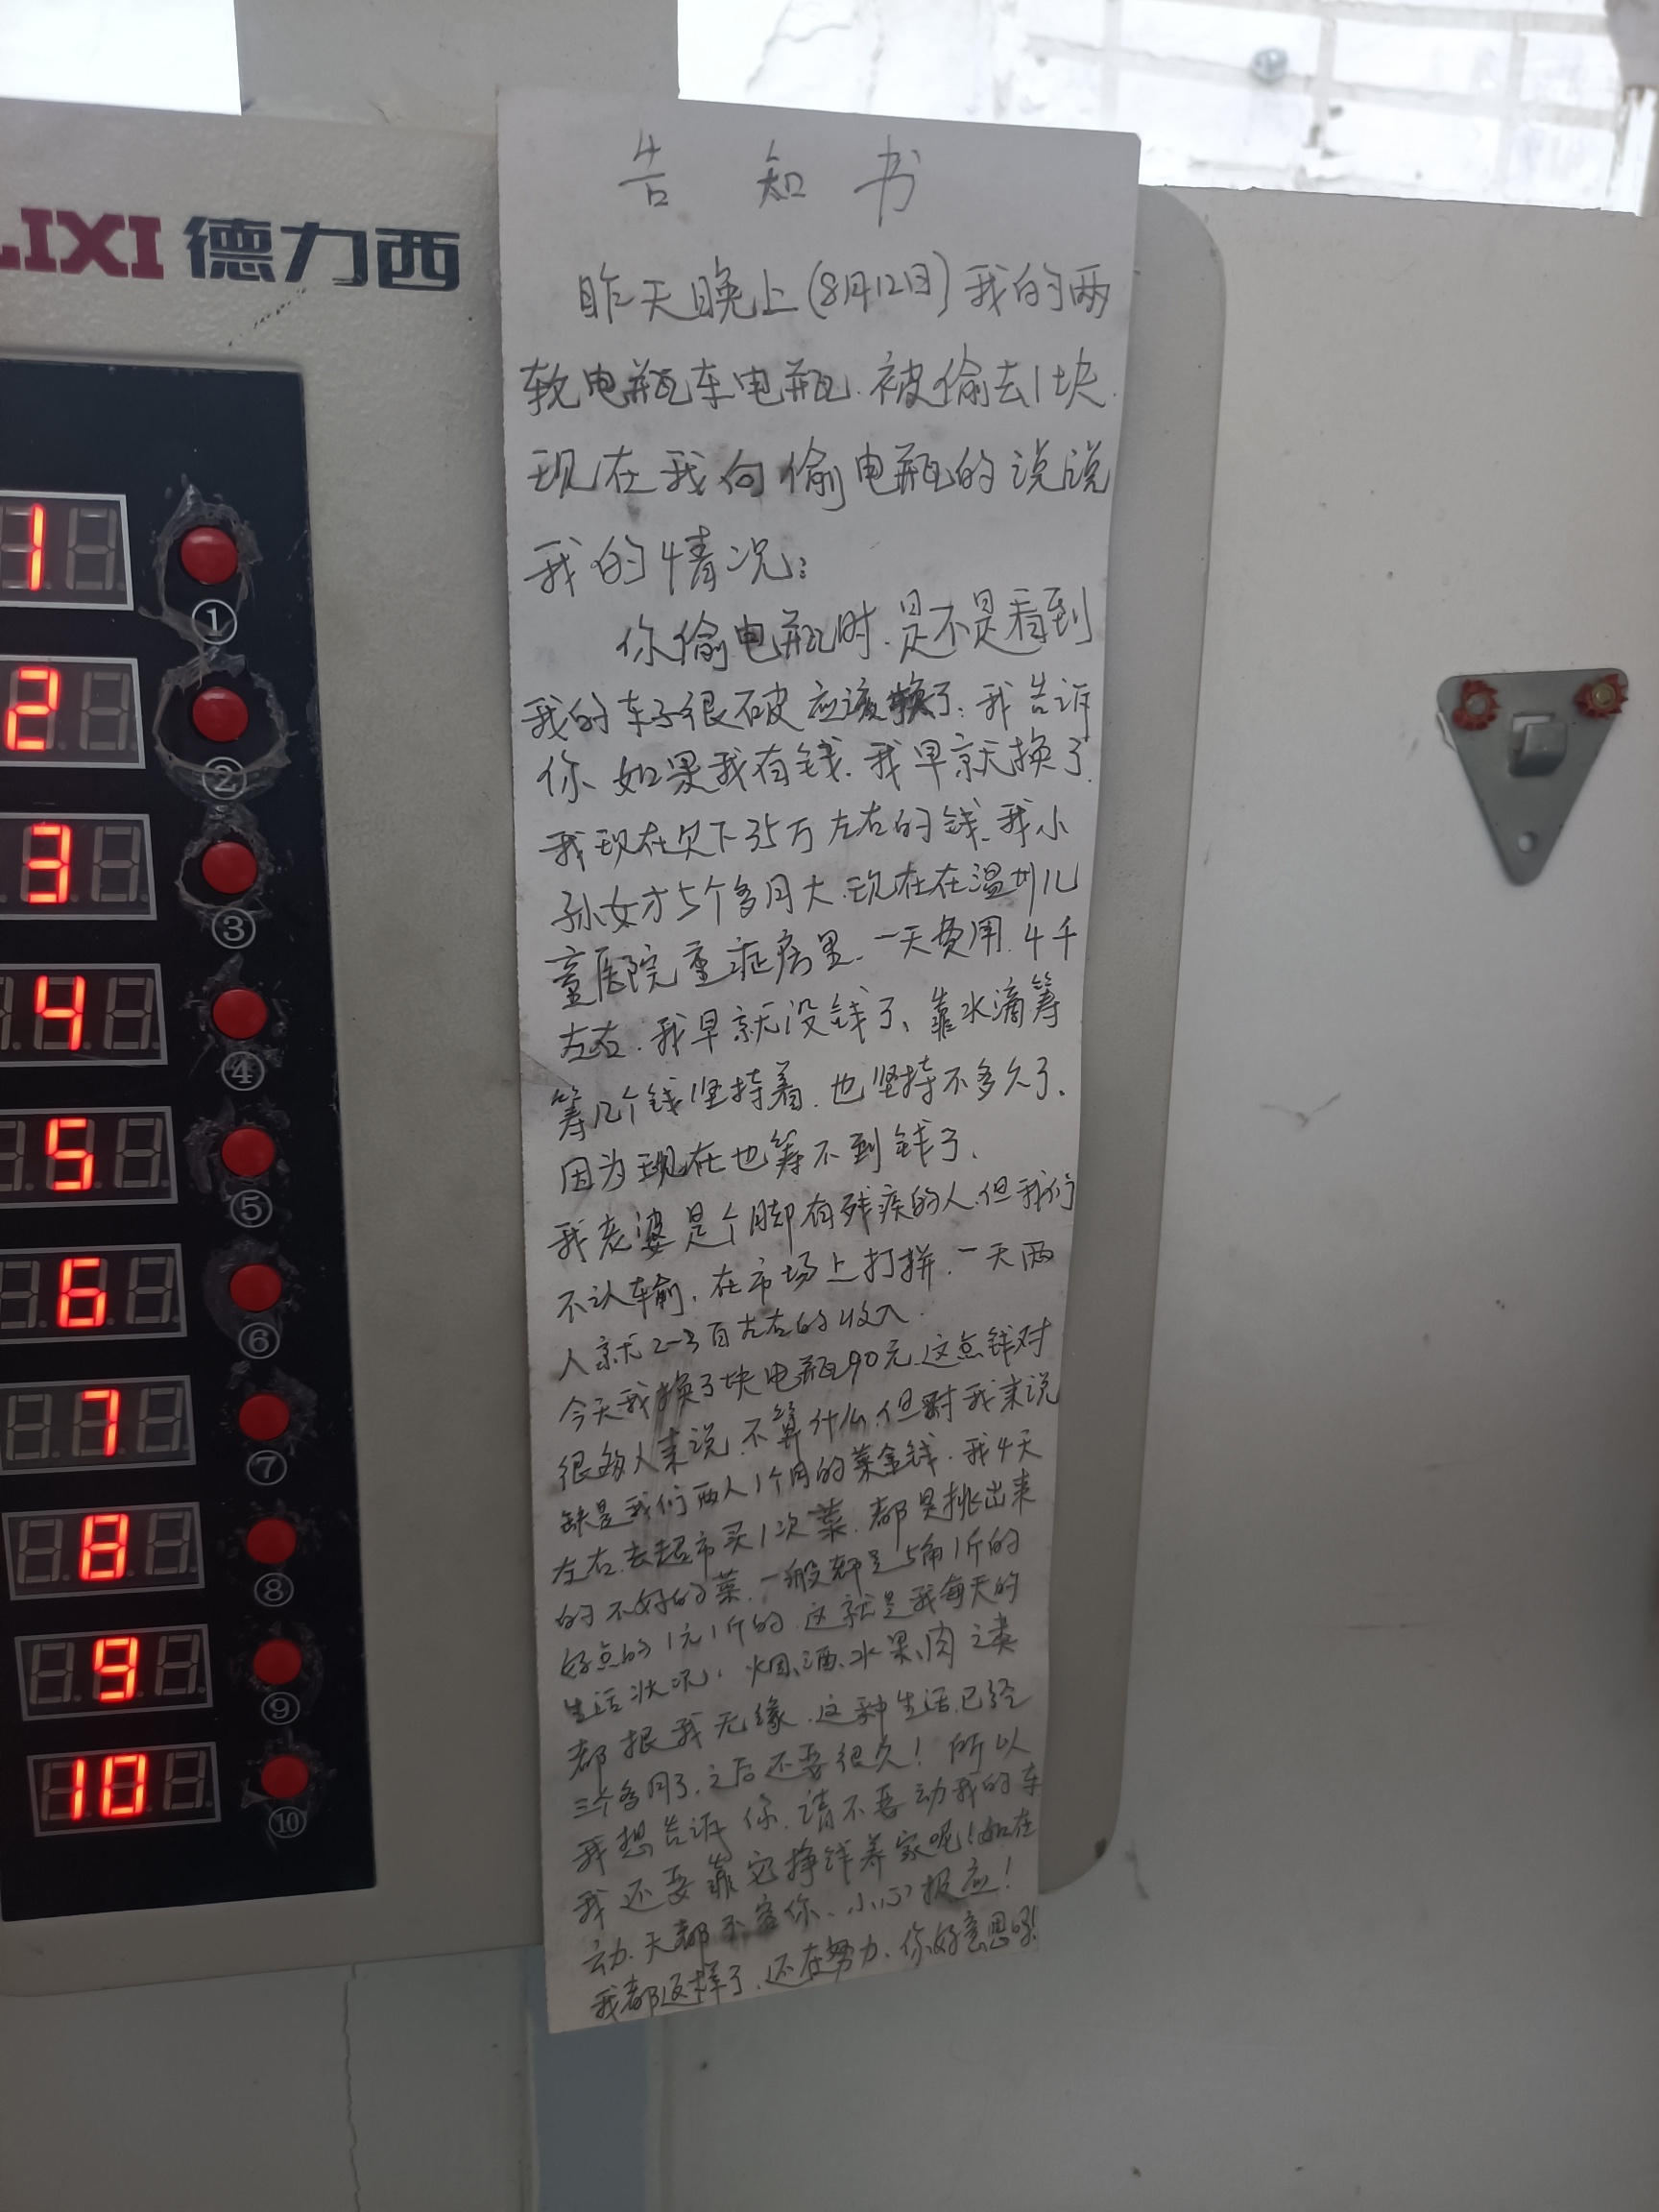 LIXI 德力西
1
①
2
②
3
③
4
④
5
⑤
6
⑥
7
⑦
8
⑧
9
⑨
10
⑩
告知书
昨天晚上(8月12日)我的两
软电瓶车电瓶.被偷去1块.
现在我向偷电瓶的说说
我的情况:
你偷电瓶时.是不是看到
我的车子很破应该换了.我告诉
你.如果我有钱.我早就换了.
我现在欠下35万左右的钱、我小
孙女才5个多月大.现在在温州儿
童医院重症病里.一天费用.4千
左右.我早就没钱了、靠水滴筹
筹几个钱坚持着.也坚持不多久了、
因为现在也筹不到钱了、
我老婆是个脚有残疾的人.但我们
不认输.在市场上打拼.一天两
人就2-3百左右的收入.
今天我换了块电瓶90元.这点钱对
很多人来说.不算什么.但对我来说
缺是我们两人1个月的菜金钱.我4天
左右.去超市买1次菜.都是挑出来
的不好的菜.一般都是5角1斤的
好点的1元1斤的.这就是我每天的
生活状况.烟、酒、水果、肉之类
都报我无缘.这种生活.已经
三个多月了.之后还要很久!所以
我想告诉你.请不要动我的车
我还要靠它挣钱养家呢!如在
动.天都不容你、小心报应!
我都这样了.还在努力、你好意思吗!